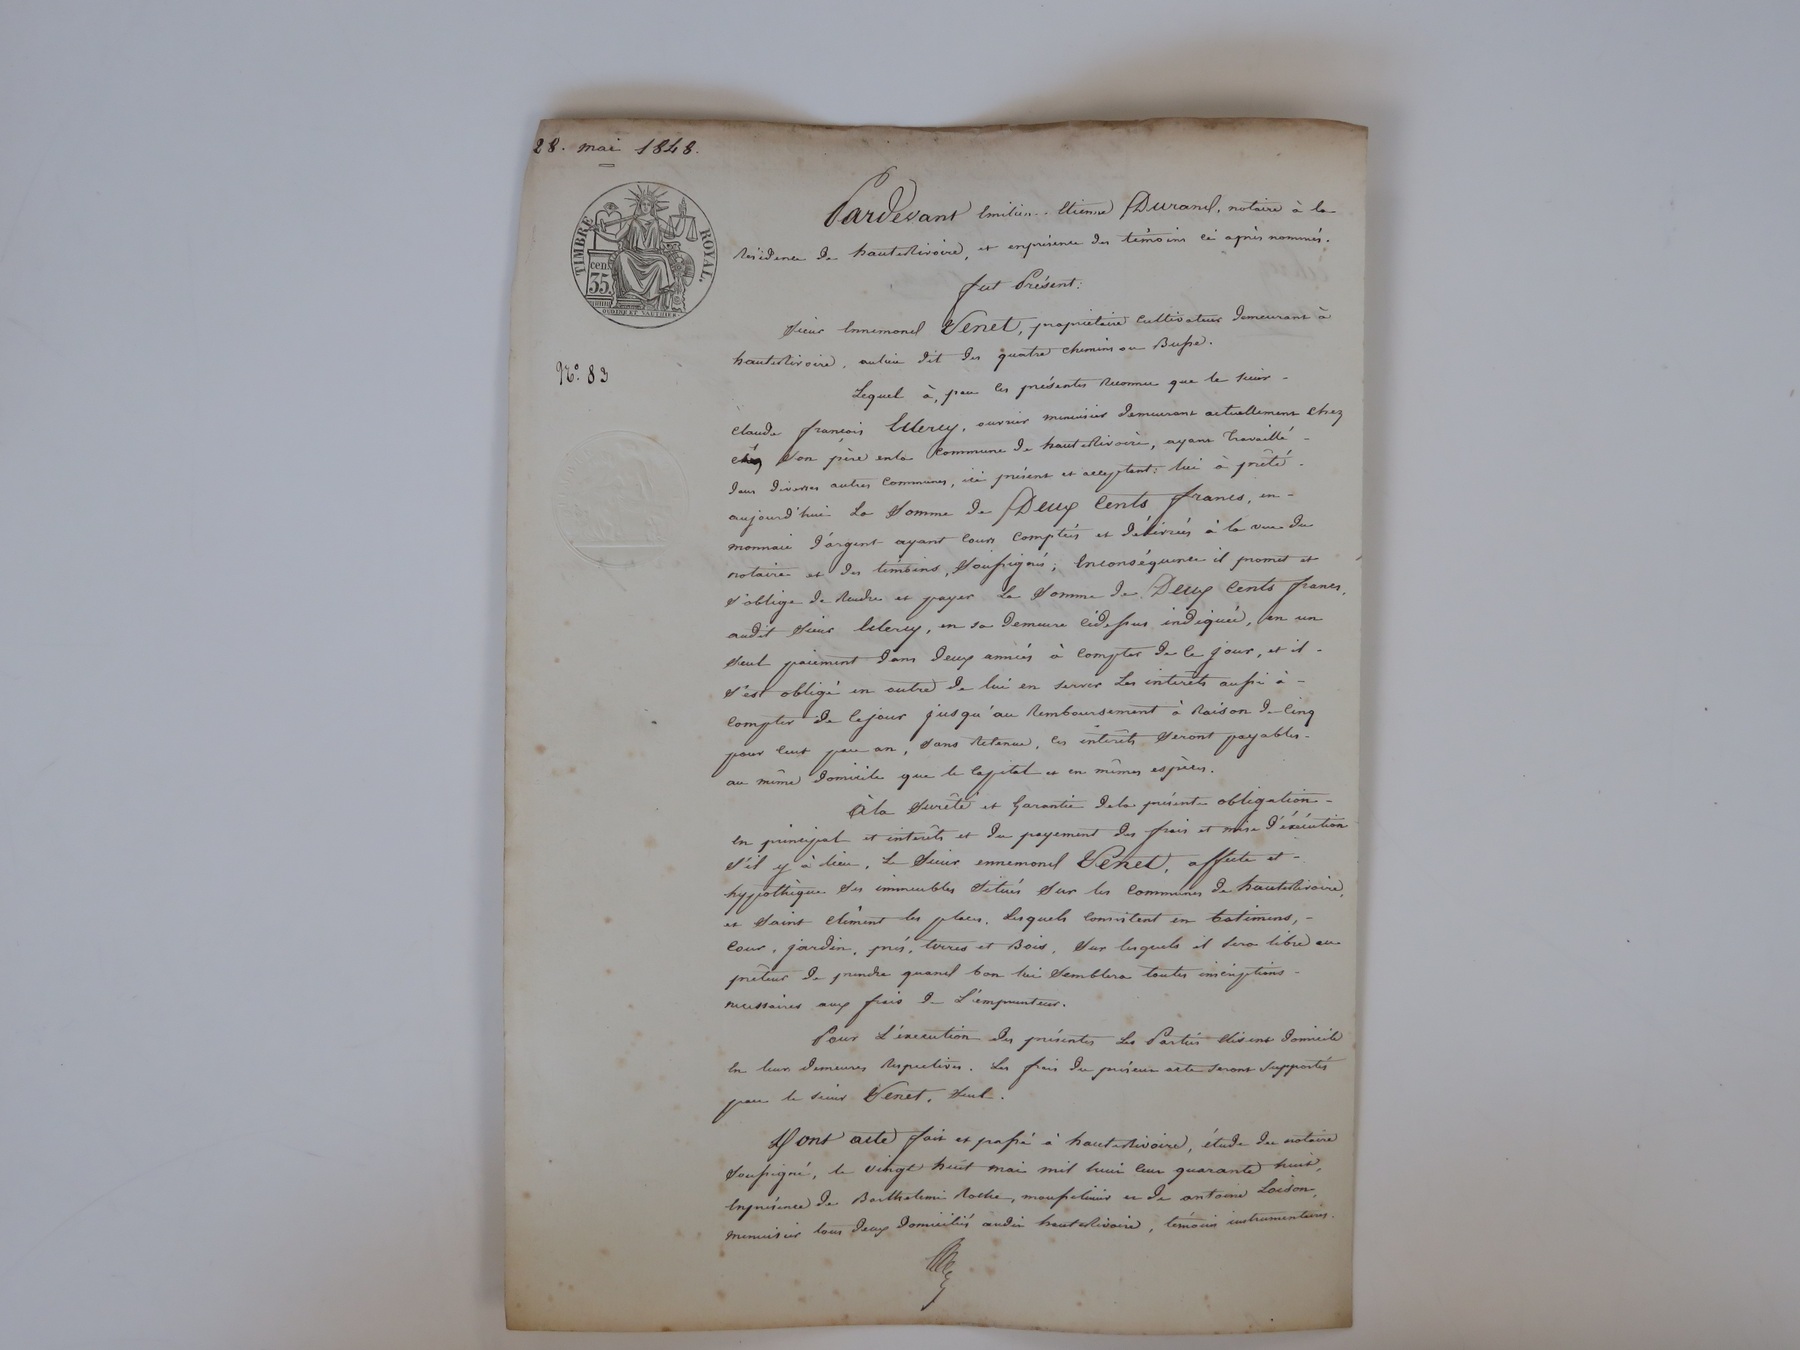 28. mai 1848.
TIMBRE ROYAL.
cen.
35.
OUDINE ET
N.º 83
Pardevant Emilien Etienne Durand, notaire à la
Résidence de hauteRivoire, et enprésence des témoins ci après nommés.
fut Présent:
Sieur Ennemond Venet, propriétaire cultivateur demeurant à
hauteRivoire, aulieu dit des quatre chemins ou Busse.
Lequel à, par les présentes Reconnu que le sieur -
Claude françois Mercy, ouvrier menuisier demeurant actuellement chez
chez Son père enla Commune de hauteRivoire, ayant Travaillé -
dans diverses autres Communes, ici présent et acceptant: lui à prêté -
aujourd'hui La Somme de Deux Cents francs, en -
monnaie d'argent ayant Cours Comptés et délivrés à la vue du
notaire et des témoins, Soussignés; Enconséquence il promet et
s'oblige de Rendre et payer La Somme de Deux Cents francs,
audit Sieur Mercy, en sa demeure cidessus indiquée, en un
Seul paiement dans deux années à Compter de Ce jour, et il -
S'est obligé en outre de lui en servir Les intérêts aussi à -
Compter de Cejour jusqu'au Remboursement à Raison de Cinq
pour Cent par an, Sans Retenue, les intérêts Seront payables -
au même domicile que le Capital et en mêmes espèces.
À la Sureté et Garantie dela présente obligation -
En principal et intérêts et du payement des frais et mise d'éxécution
S'il y à lieu, Le Sieur ennemond Venet, affecte et -
hypothèque Ses immeubles Situés Sur les Communes de hauteRivoire,
et Saint Clément les places, Lesquels Consistent en batimens, -
Cour, jardin, prés, terres et Bois, Sur lesquels il Sera libre au
prêteur de prendre quand bon lui Semblera toutes inscriptions -
necessaires aux frais de L'emprunteur.
Pour L'éxecution des présentes Les Parties élisent domicile
En leurs demeures Respectives. Les frais du présent acte seront Supportés
par le sieur Venet, Seul.
Dont acte fait et passé à hauteRivoire, étude du notaire
Soussigné, le vingt huit mai mil huit cent quarante huit,
Enprésence de Barthelemi Roche, et de antoine Loison,
menuisier tous deux domiciliés audit hauteRivoire, témoins instrumentaires.